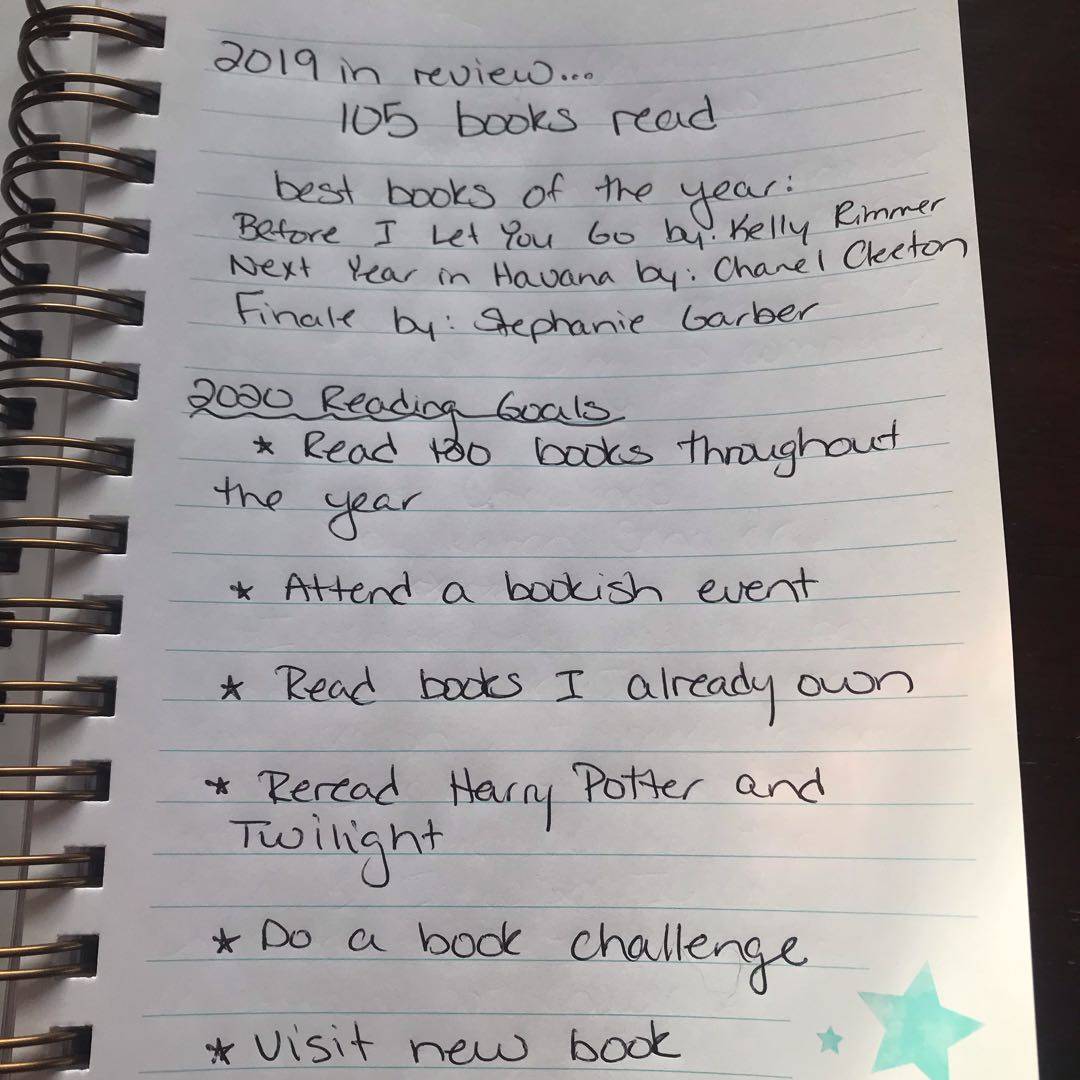 2019 in review...
105 books read
best books of the year:
Before I Let You Go by: Kelly Rimmer
Next Year in Havana by: Chanel Cleeton
Finale by: Stephanie Garber
2020 Reading Goals
* Read books throughout
the year
* Attend a bookish event
* Read books I already own
* Reread Harry Potter and
Twilight
* Do a book challenge
* Visit new book